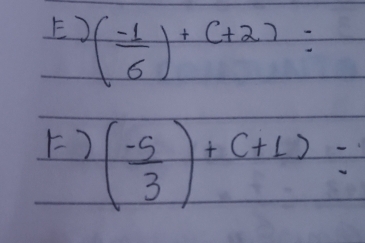 E) (-1/6) + (+2) =
F) (-5/3) + (+1) =